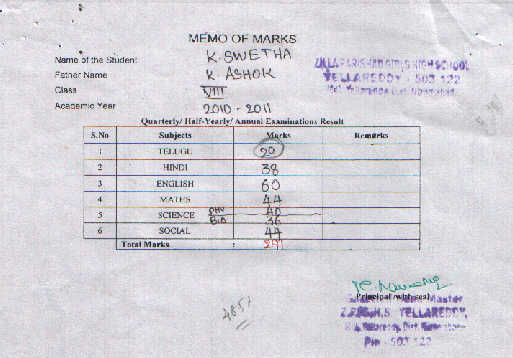 MEMO OF MARKS
Name of the Student K. SWETHA
Father Name K. ASHOK
Class VIII
Academic Year 2010 - 2011
Z.P. PARISHAD GIRLS HIGH SCHOOL
YELLAREDDY - 503 122
Quarterly/ Half-Yearly/ Annual Examinations Result
S.No Subjects Marks Remarks
1 TELUGU 29
2 HINDI 38
3 ENGLISH 60
4 MATHS 44
5 SCIENCE PHY 40
BIO 36
6 SOCIAL 44
Total Marks : 291
Principal with seal
Master
YELLAREDDY,
Pin - 503 122